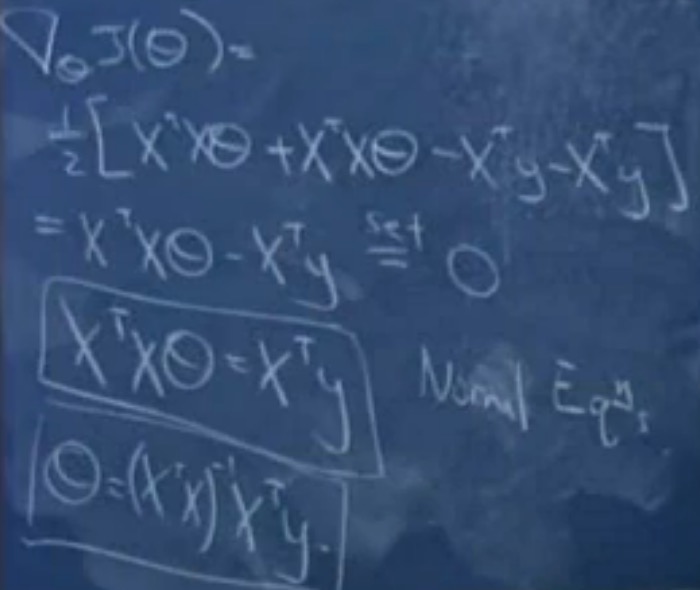 ∇_θ J(θ) =
½[XᵀXθ + XᵀXθ − Xᵀy − Xᵀy]
= XᵀXθ − Xᵀy set= 0
XᵀXθ = Xᵀy Normal Eqⁿs
θ = (XᵀX)⁻¹Xᵀy.